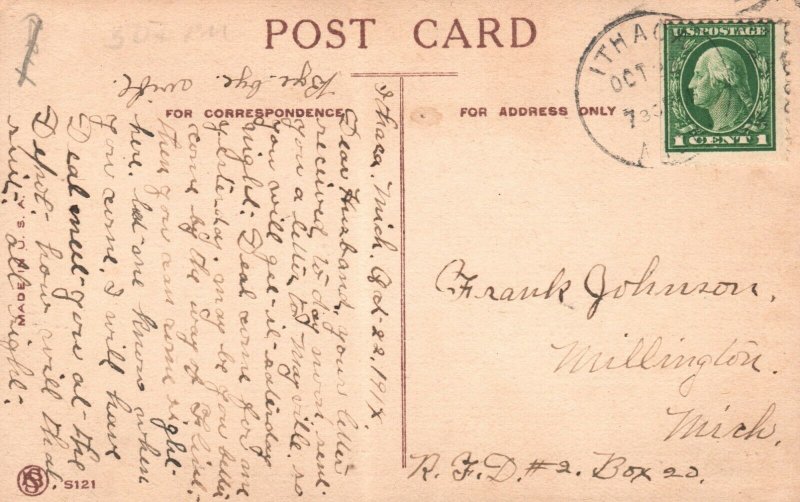 POST CARD
FOR CORRESPONDENCE
FOR ADDRESS ONLY
ITHACA
OCT
730
U.S. POSTAGE
1 CENT 1
Ithaca. Mich. Oct. 22. 191
Dear Husband. your letter
received to day noon. sent
you a letter to Mayville. so
you will get it saterday
night. Deal come for me
yesterday. may be you better
come by the way of
then you can come right
here. let me know when
you come. I will have
Deal meet you at the
Depot. how will that
suit. all right.
Bye. bye. wife.
Frank Johnson.
Millington.
Mich.
R. F. D. #2. Box 20.
MADE IN U.S.A.
S121